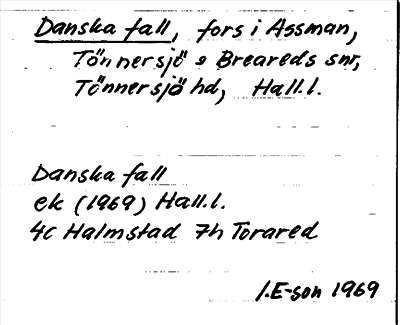 Danska fall, fors i Assman,
Tönnersjö o Breareds snr,
Tönnersjö hd, Hall.l.
Danska fall
ek (1969) Hall.l.
4c Halmstad 7h Torared
I.E-son 1969